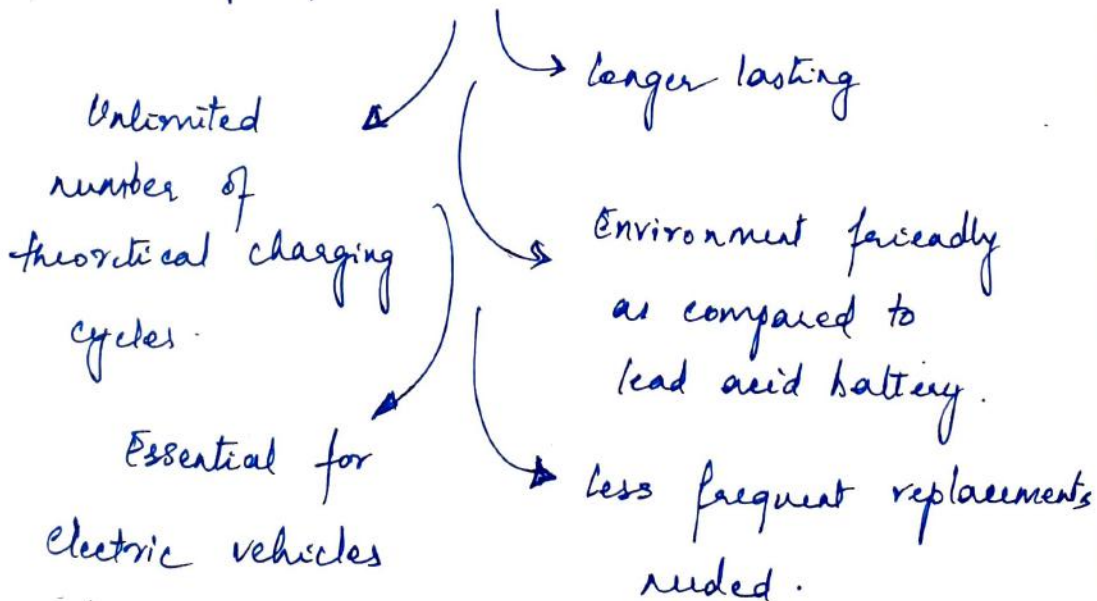 Unlimited
number of
theoretical charging
cycles.
Essential for
electric vehicles
longer lasting
Environment friendly
as compared to
lead acid battery.
less frequent replacements
needed.